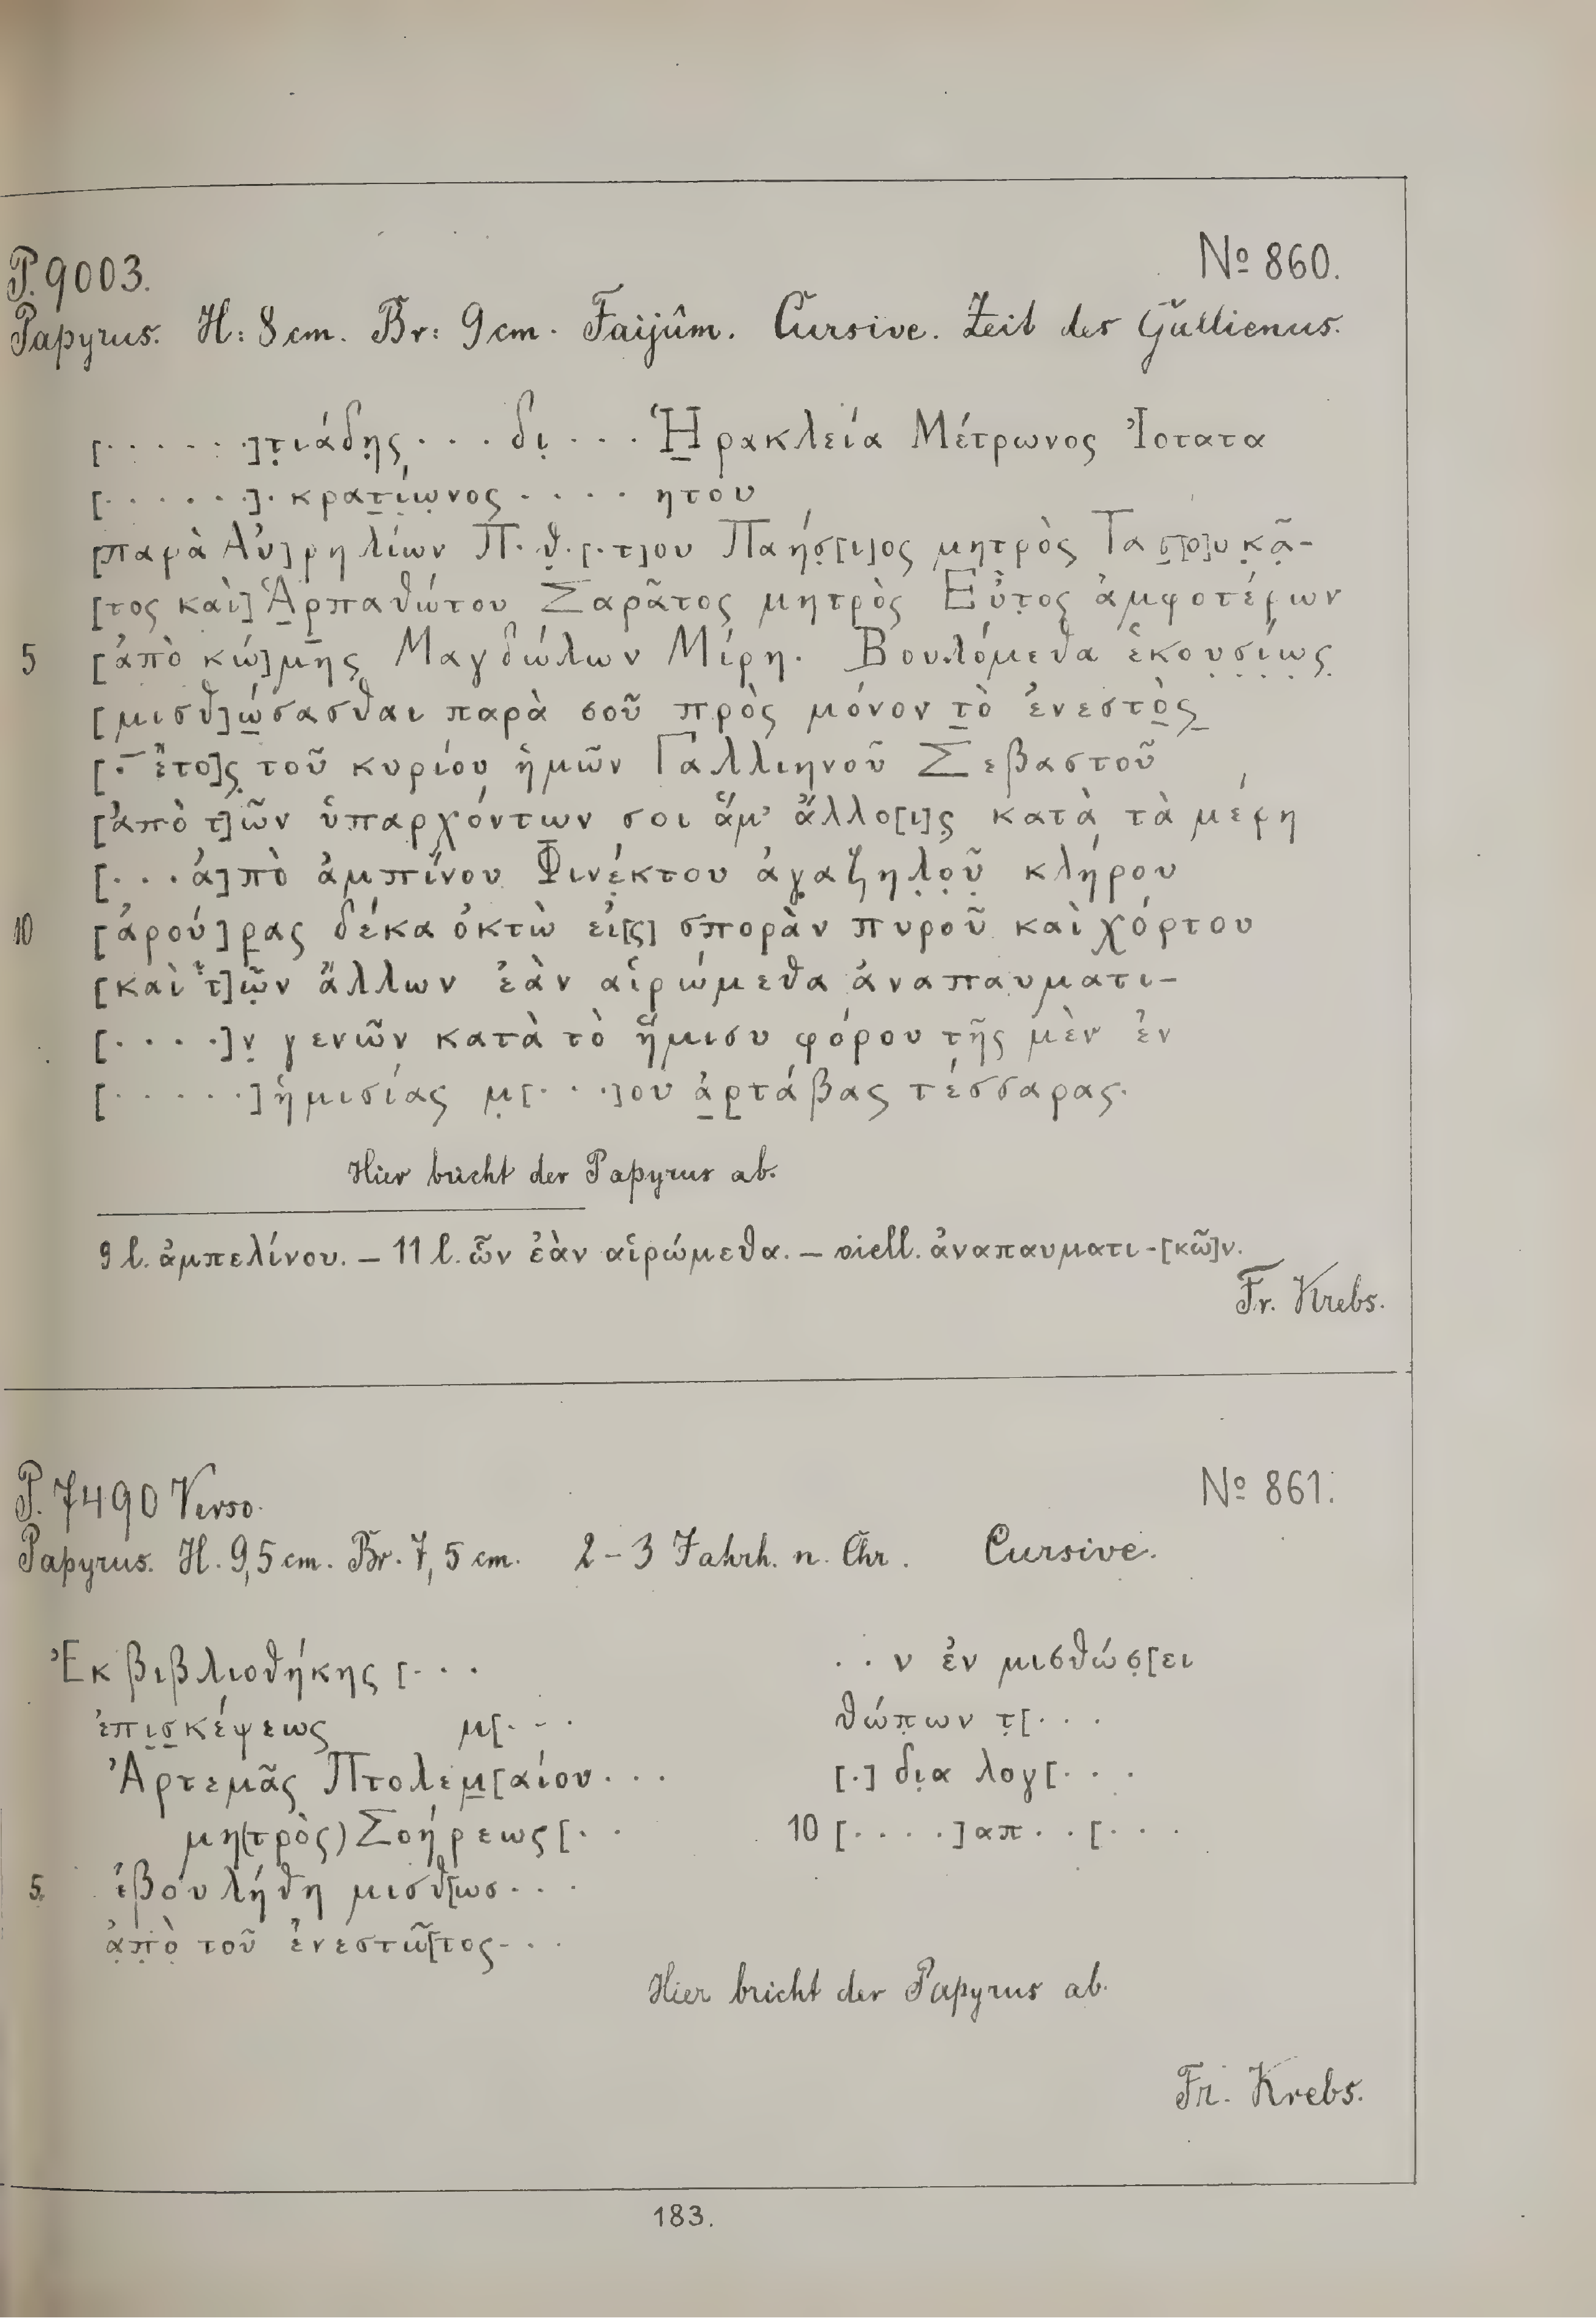 P. 9003.
№ 860.
Papyrus. H: 8 cm. Br: 9 cm. Faijûm. Cursive. Zeit des Gallienus.
[· · · · · ·]τ̣ιάδη̣ς · · · δι̣ · · · Ἡ̣ρακλεία Μέτρωνος Ἰστατα
[· · · · · ·]· κρατ̣ί̣ω̣νος · · · · ητου
[παρὰ Αὐ]ρηλίων Π·θ̣·[·τ]ου Παήσ̣[ι]ος μητρὸς Τασ̣[ο]υκ̣ᾶ̣-
[τος καὶ] Ἁ̣ρπαθώτου Σαρᾶτος μητρὸς Εὖτ̣ος ἀμφοτέρων
5 [ἀπὸ κώ]μης Μαγδώλων Μίρη. Βουλόμεθα ἑκου̣σ̣ί̣ω̣ς̣
[μισθ]ώ̣σασθαι παρὰ σοῦ πρὸς μόνον τ̣ὸ ἐνεστὸ̣ς̣
[· ἔτο]ς̣ τοῦ κυρίου ἡμῶν Γαλλιηνοῦ Σεβαστοῦ
[ἀπὸ τ]ῶν ὑπαρχόντων σοι ἅμ’ ἄλλο[ι]ς κατὰ τὰ μέρη
[· · · ἀ]πὸ ἀμπίνου Φινέ̣κτου ἀγ̣αζηλ̣ο̣ῦ̣ κλήρου
10 [ἀρού]ρ̣ας δέκα ὀκτὼ εἰ[ς] σπορὰν πυροῦ καὶ χόρτου
[καὶ τ]ῶ̣ν ἄλλων ἐὰν αἱρώμεθα ἀναπαυματι-
[· · · ·]ν̣ γενῶν κατὰ τὸ ἥμισυ φόρου τῆς μὲν ἐν
[· · · · · ·] ἡμισίας μ̣[· · ·]ου ἀ̣ρ̣τάβας τέσσαρας.
Hier bricht der Papyrus ab.
9 l. ἀμπελίνου. — 11 l. ὧν ἐὰν αἱρώμεθα. — viell. ἀναπαυματι-[κῶ]ν.
Fr. Krebs.
P. 7490 Verso.
№ 861.
Papyrus. H. 9,5 cm. Br. 7,5 cm. 2–3 Jahrh. n. Chr. Cursive.
Ἐκ βιβλιοθήκης [· · ·
ἐπι̣σ̣κέψεως μ[· · ·
Ἀρτεμᾶς Πτολεμ̣[αίου · · ·
μη(τρὸς) Σοήρεως [· ·
5 ἐβουλήθη μισθ[ωσ · · ·
ἀ̣π̣ὸ̣ τοῦ ἐνεστῶ[τος · · ·
· · ν ἐν μισθώσ̣[ει
θώπ̣ων τ̣[· · ·
[·] δι̣α λογ[· · ·
10 [· · · ·] απ · · [· · ·
Hier bricht der Papyrus ab.
Fr. Krebs.
183.